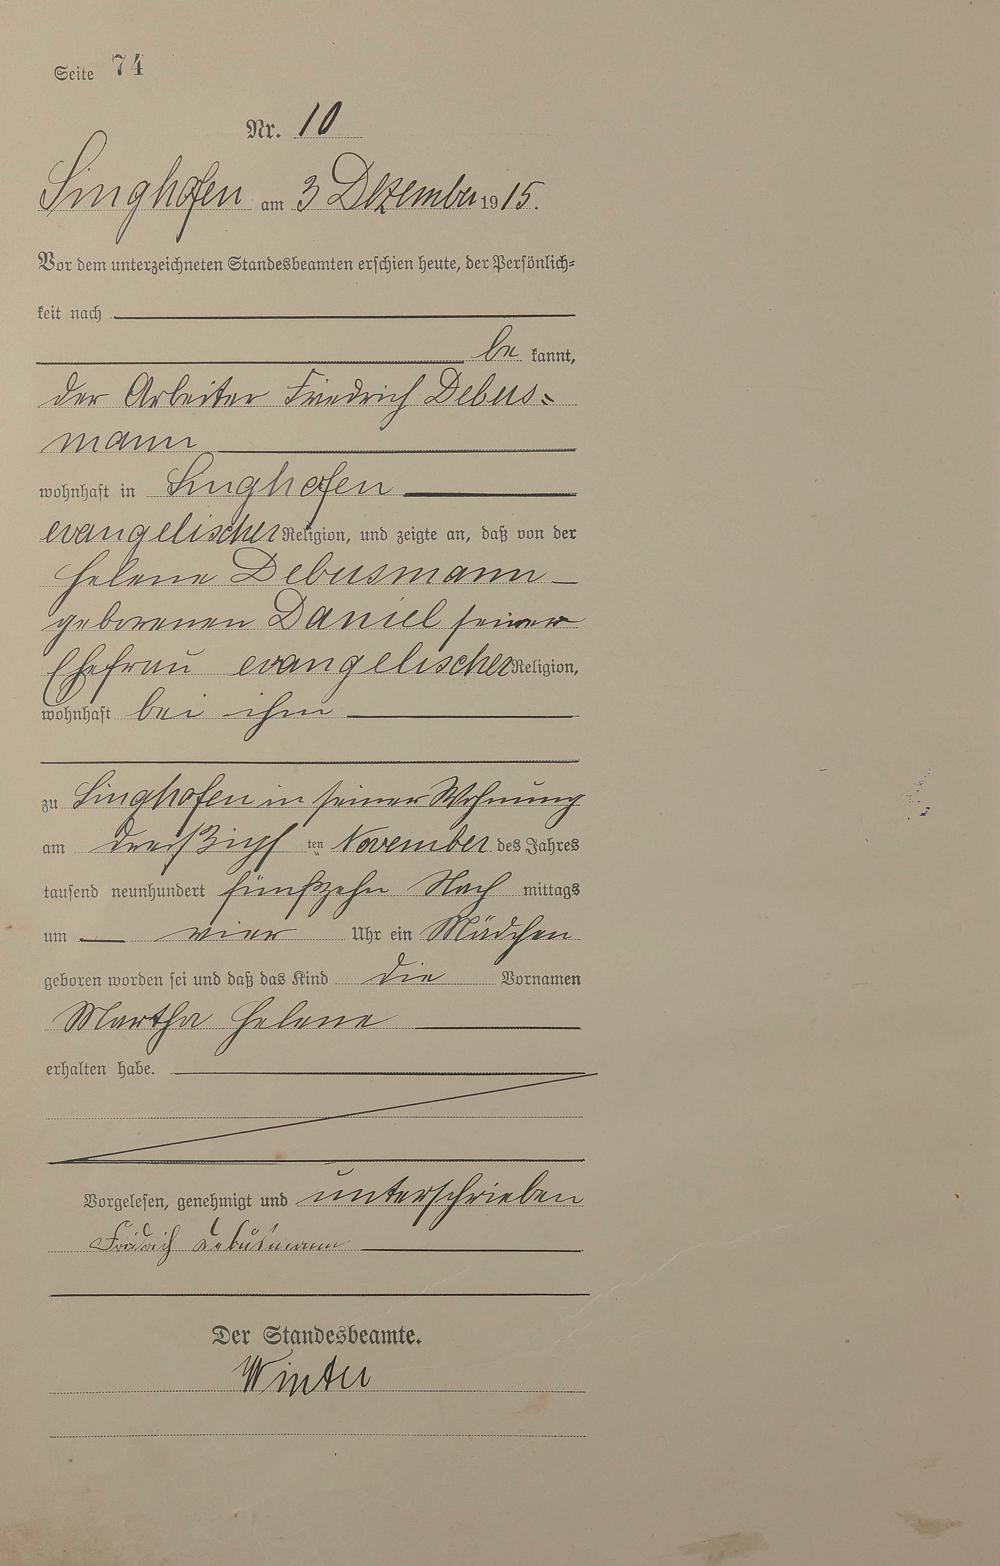 Seite 74
Nr. 10
Singhofen am 3 Dezember 1915.
Vor dem unterzeichneten Standesbeamten erschien heute, der Persönlich=
keit nach
be kannt,
der Arbeiter Friedrich Debus=
mann
wohnhaft in Singhofen
evangelischer Religion, und zeigte an, daß von der
Helene Debusmann
geborenen Daniel seiner
Ehefrau evangelischer Religion,
wohnhaft bei ihm
zu Singhofen in seiner Wohnung
am dreißigst ten November des Jahres
tausend neunhundert fünfzehn Nach mittags
um vier Uhr ein Mädchen
geboren worden sei und daß das Kind die Vornamen
Martha Helene
erhalten habe.
Vorgelesen, genehmigt und unterschrieben
Friedrich Debusmann
Der Standesbeamte.
Winter